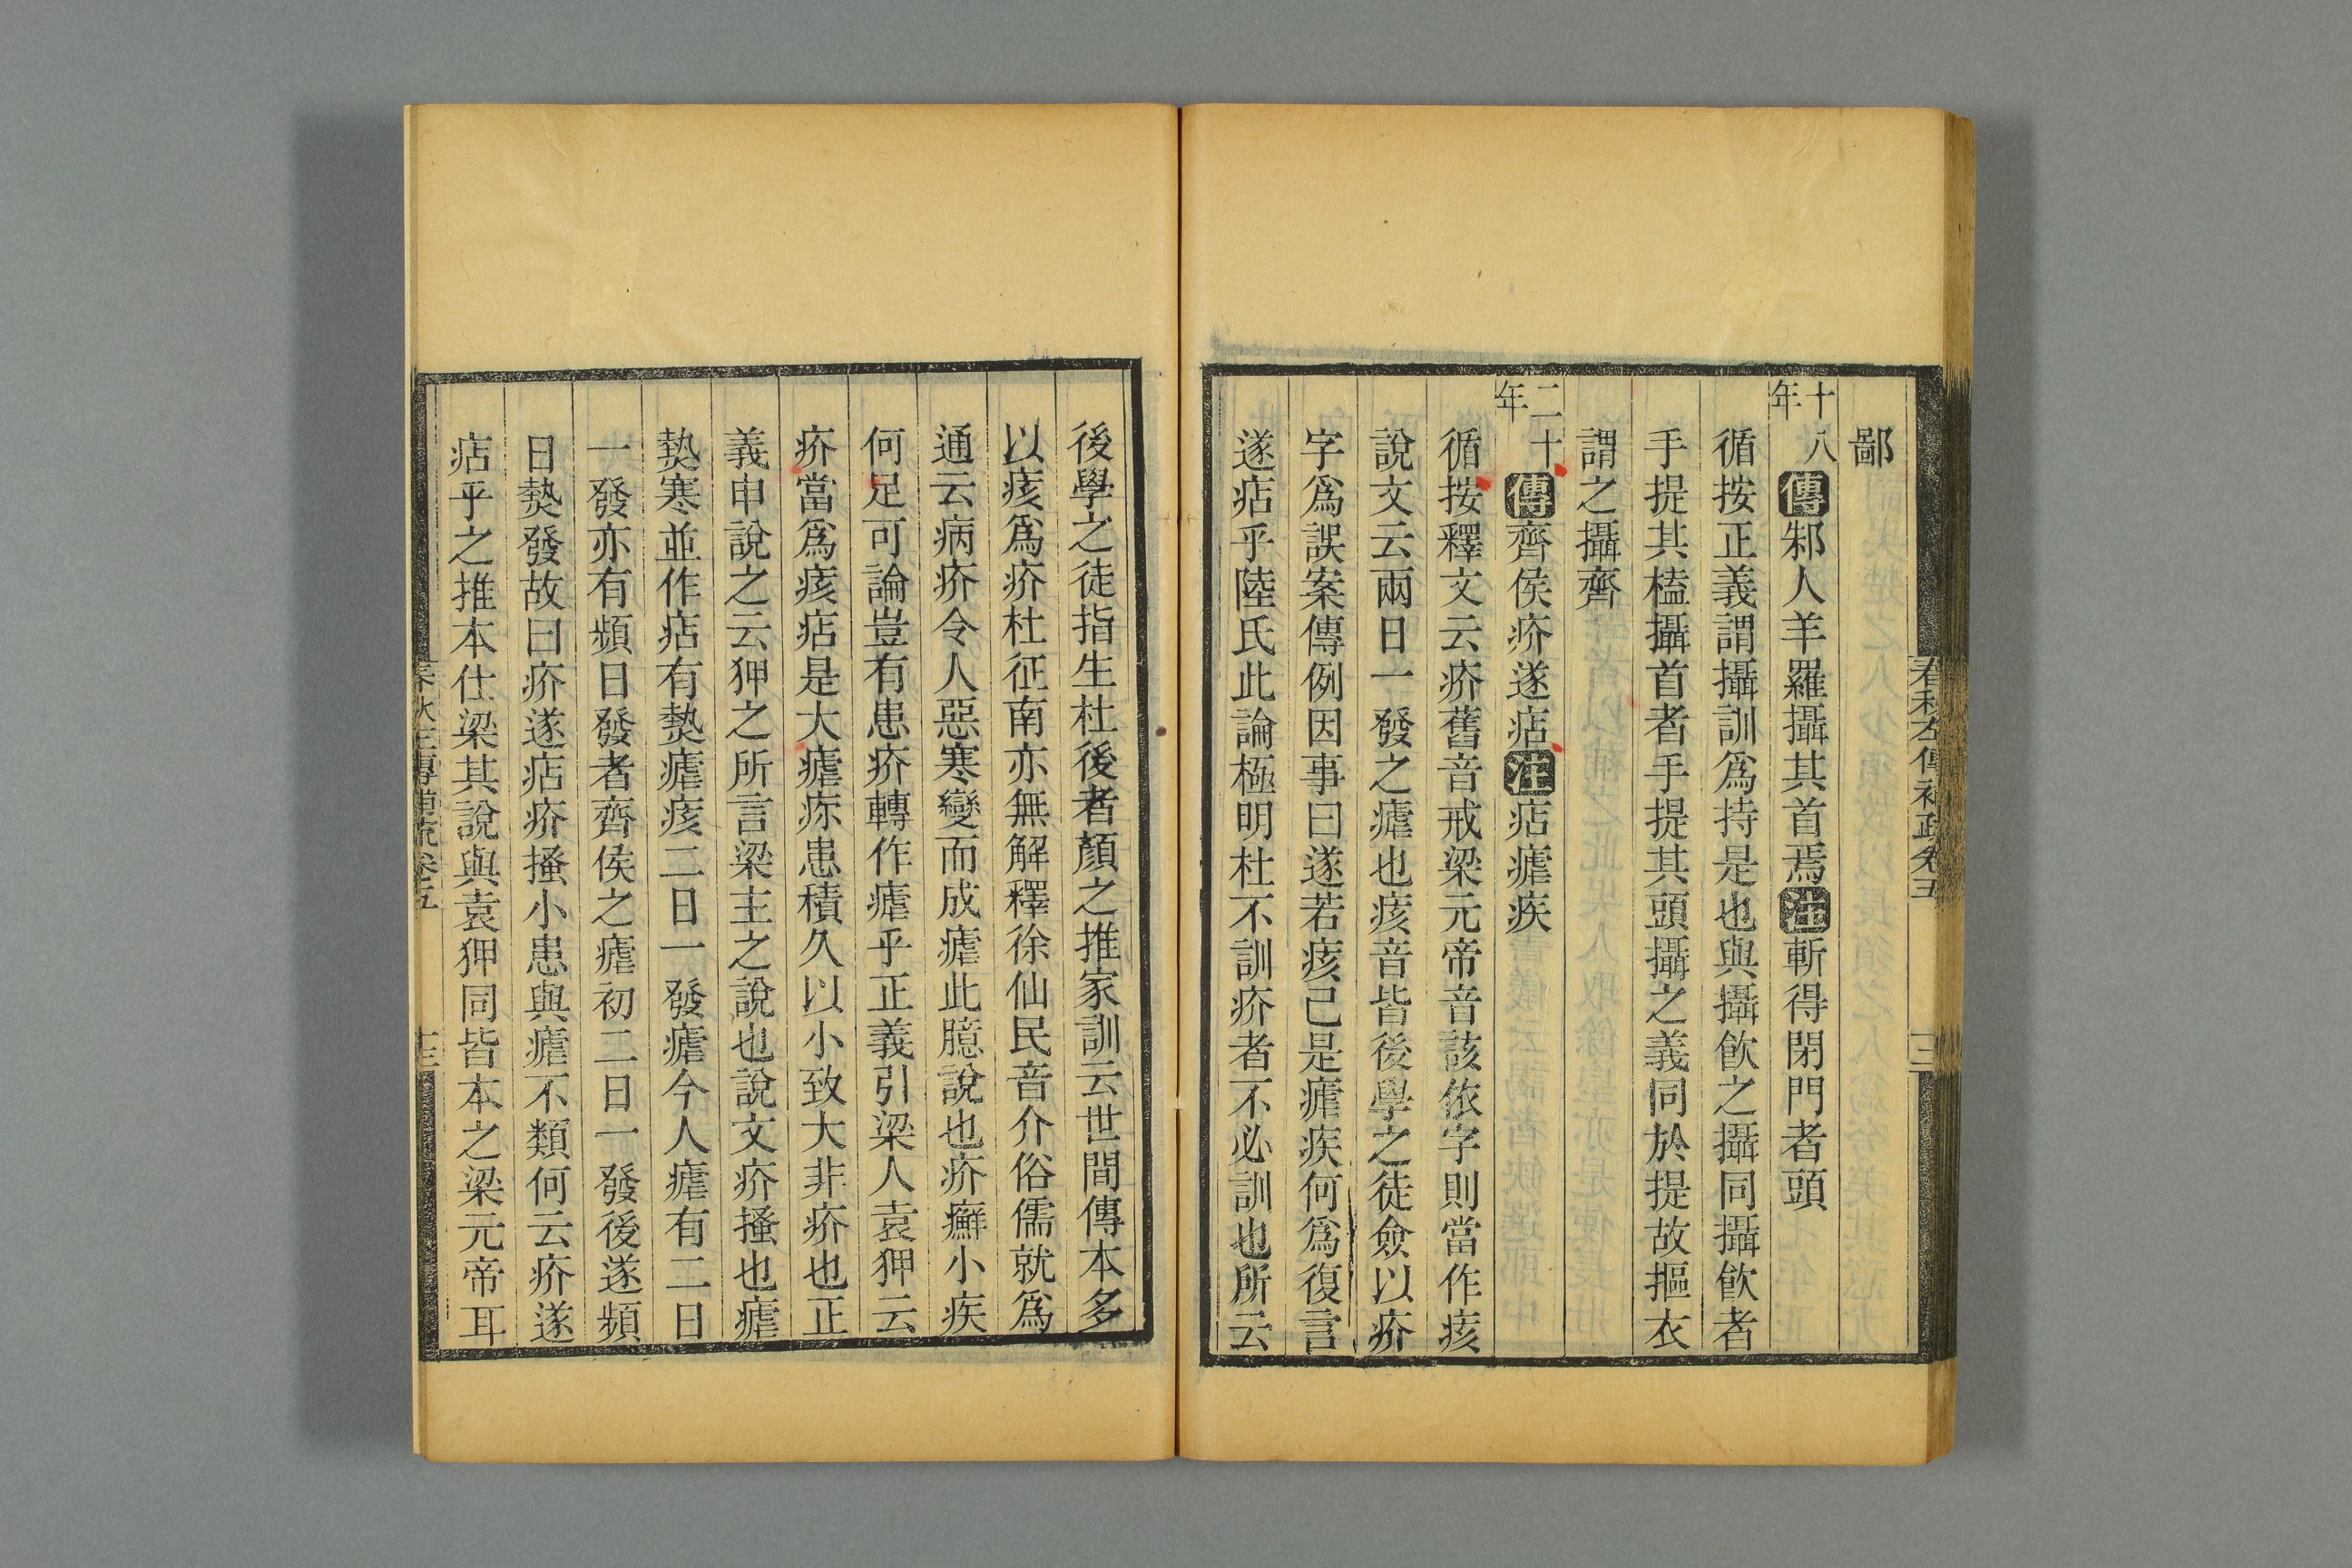 鄙
十八年傳邾人羊羅攝其首焉注斬得閉門者頭
循按正義謂攝訓爲持是也與攝飮之攝同攝飮者
手提其榼攝首者手提其頭攝之義同於提故摳衣
謂之攝齊
二十年傳齊侯疥遂痁注痁瘧疾
循按釋文云疥舊音戒梁元帝音該依字則當作痎
說文云兩日一發之瘧也痎音皆後學之徒僉以疥
字爲誤案傳例因事曰遂若痎已是瘧疾何爲復言
遂痁乎陸氏此論極明杜不訓疥者不必訓也所云
後學之徒指生杜後者顏之推家訓云世間傳本多
以痎爲疥杜征南亦無解釋徐仙民音介俗儒就爲
通云病疥令人惡寒變而成瘧此臆說也疥癬小疾
何足可論豈有患疥轉作瘧乎正義引梁人袁狎云
疥當爲痎痁是大瘧疢患積久以小致大非疥也正
義申說之云狎之所言梁主之說也說文疥搔也瘧
𤍠寒並作痁有𤍠瘧痎二日一發瘧今人瘧有二日
一發亦有頻日發者齊侯之瘧初二日一發後遂頻
日𤍠發故曰疥遂痁疥搔小患與瘧不類何云疥遂
痁乎之推本仕梁其說與袁狎同皆本之梁元帝耳
春秋左傳補疏卷五